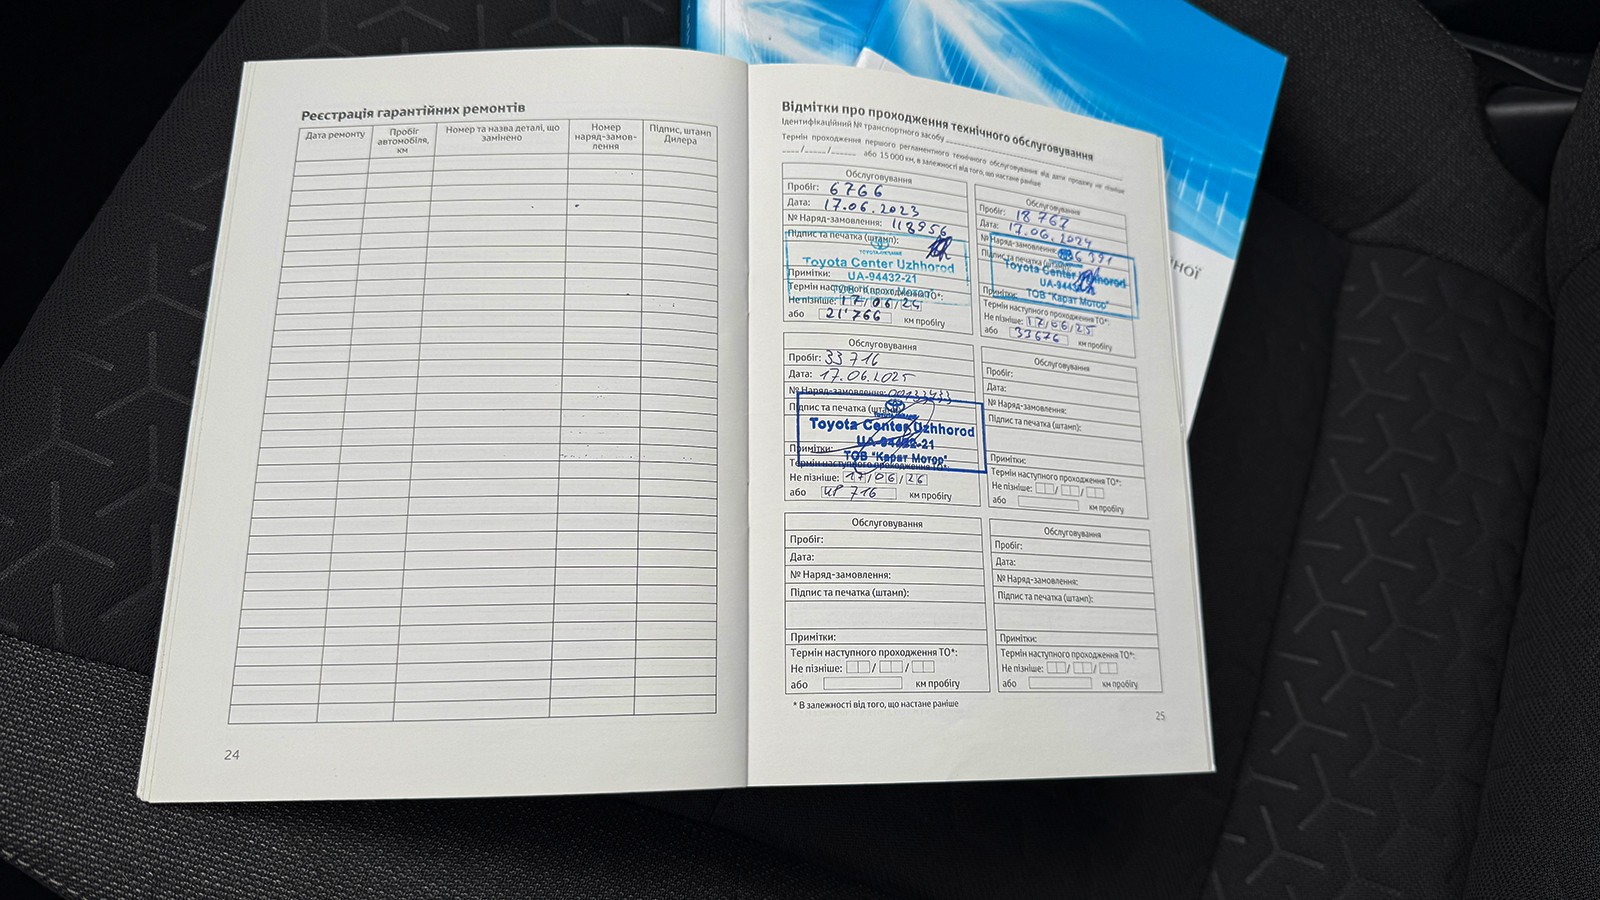 Реєстрація гарантійних ремонтів
Дата ремонту
Пробіг автомобіля, км
Номер та назва деталі, що замінено
Номер наряд-замов-лення
Підпис, штамп Дилера
24
Відмітки про проходження технічного обслуговування
Ідентифікаційний № транспортного засобу
Термін проходження першого регламентного технічного обслуговування від дати продажу не пізніше
___/___/___ або 15 000 км, в залежності від того, що настане раніше
Обслуговування
Пробіг: 6766
Дата: 17.06.2023
№ Наряд-замовлення: 118956
Підпис та печатка (штамп):
Toyota Center Uzhhorod
UA-94432-21
Примітки:
ТОВ "Карат Мотор"
Термін наступного проходження ТО*:
Не пізніше: 17/06/24
або 21'766 км пробігу
Обслуговування
Пробіг: 18 767
Дата: 17.06.2024
№ Наряд-замовлення:
Підпис та печатка (штамп):
Toyota Center Uzhhorod
UA-94432-21
Примітки:
ТОВ "Карат Мотор"
Термін наступного проходження ТО*:
Не пізніше: 17/06/25
або 33676 км пробігу
Обслуговування
Пробіг: 33 716
Дата: 17.06.2025
№ Наряд-замовлення: 00133433
Підпис та печатка (штамп):
Toyota Center Uzhhorod
UA-94432-21
Примітки:
ТОВ "Карат Мотор"
Термін наступного проходження ТО*:
Не пізніше: 17/06/26
або 716 км пробігу
Обслуговування
Пробіг:
Дата:
№ Наряд-замовлення:
Підпис та печатка (штамп):
Примітки:
Термін наступного проходження ТО*:
Не пізніше: / /
або км пробігу
Обслуговування
Пробіг:
Дата:
№ Наряд-замовлення:
Підпис та печатка (штамп):
Примітки:
Термін наступного проходження ТО*:
Не пізніше: / /
або км пробігу
Обслуговування
Пробіг:
Дата:
№ Наряд-замовлення:
Підпис та печатка (штамп):
Примітки:
Термін наступного проходження ТО*:
Не пізніше: / /
або км пробігу
* В залежності від того, що настане раніше
25